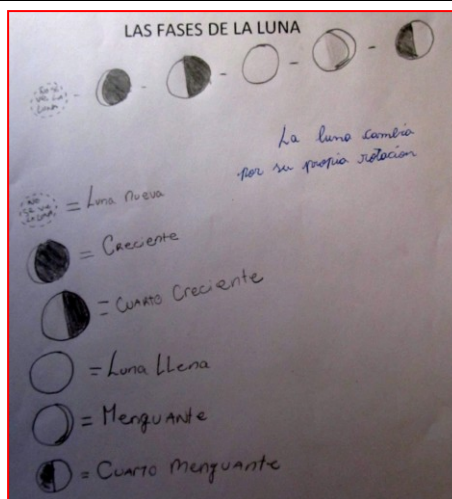 LAS FASES DE LA LUNA
NO SE
VE LA
LUNA
La luna cambia
por su propia rotacion
NO
SE VE
LA LUNA
= Luna nueva
= Creciente
= Cuarto Creciente
= Luna LLena
= Menguante
= Cuarto Menguante